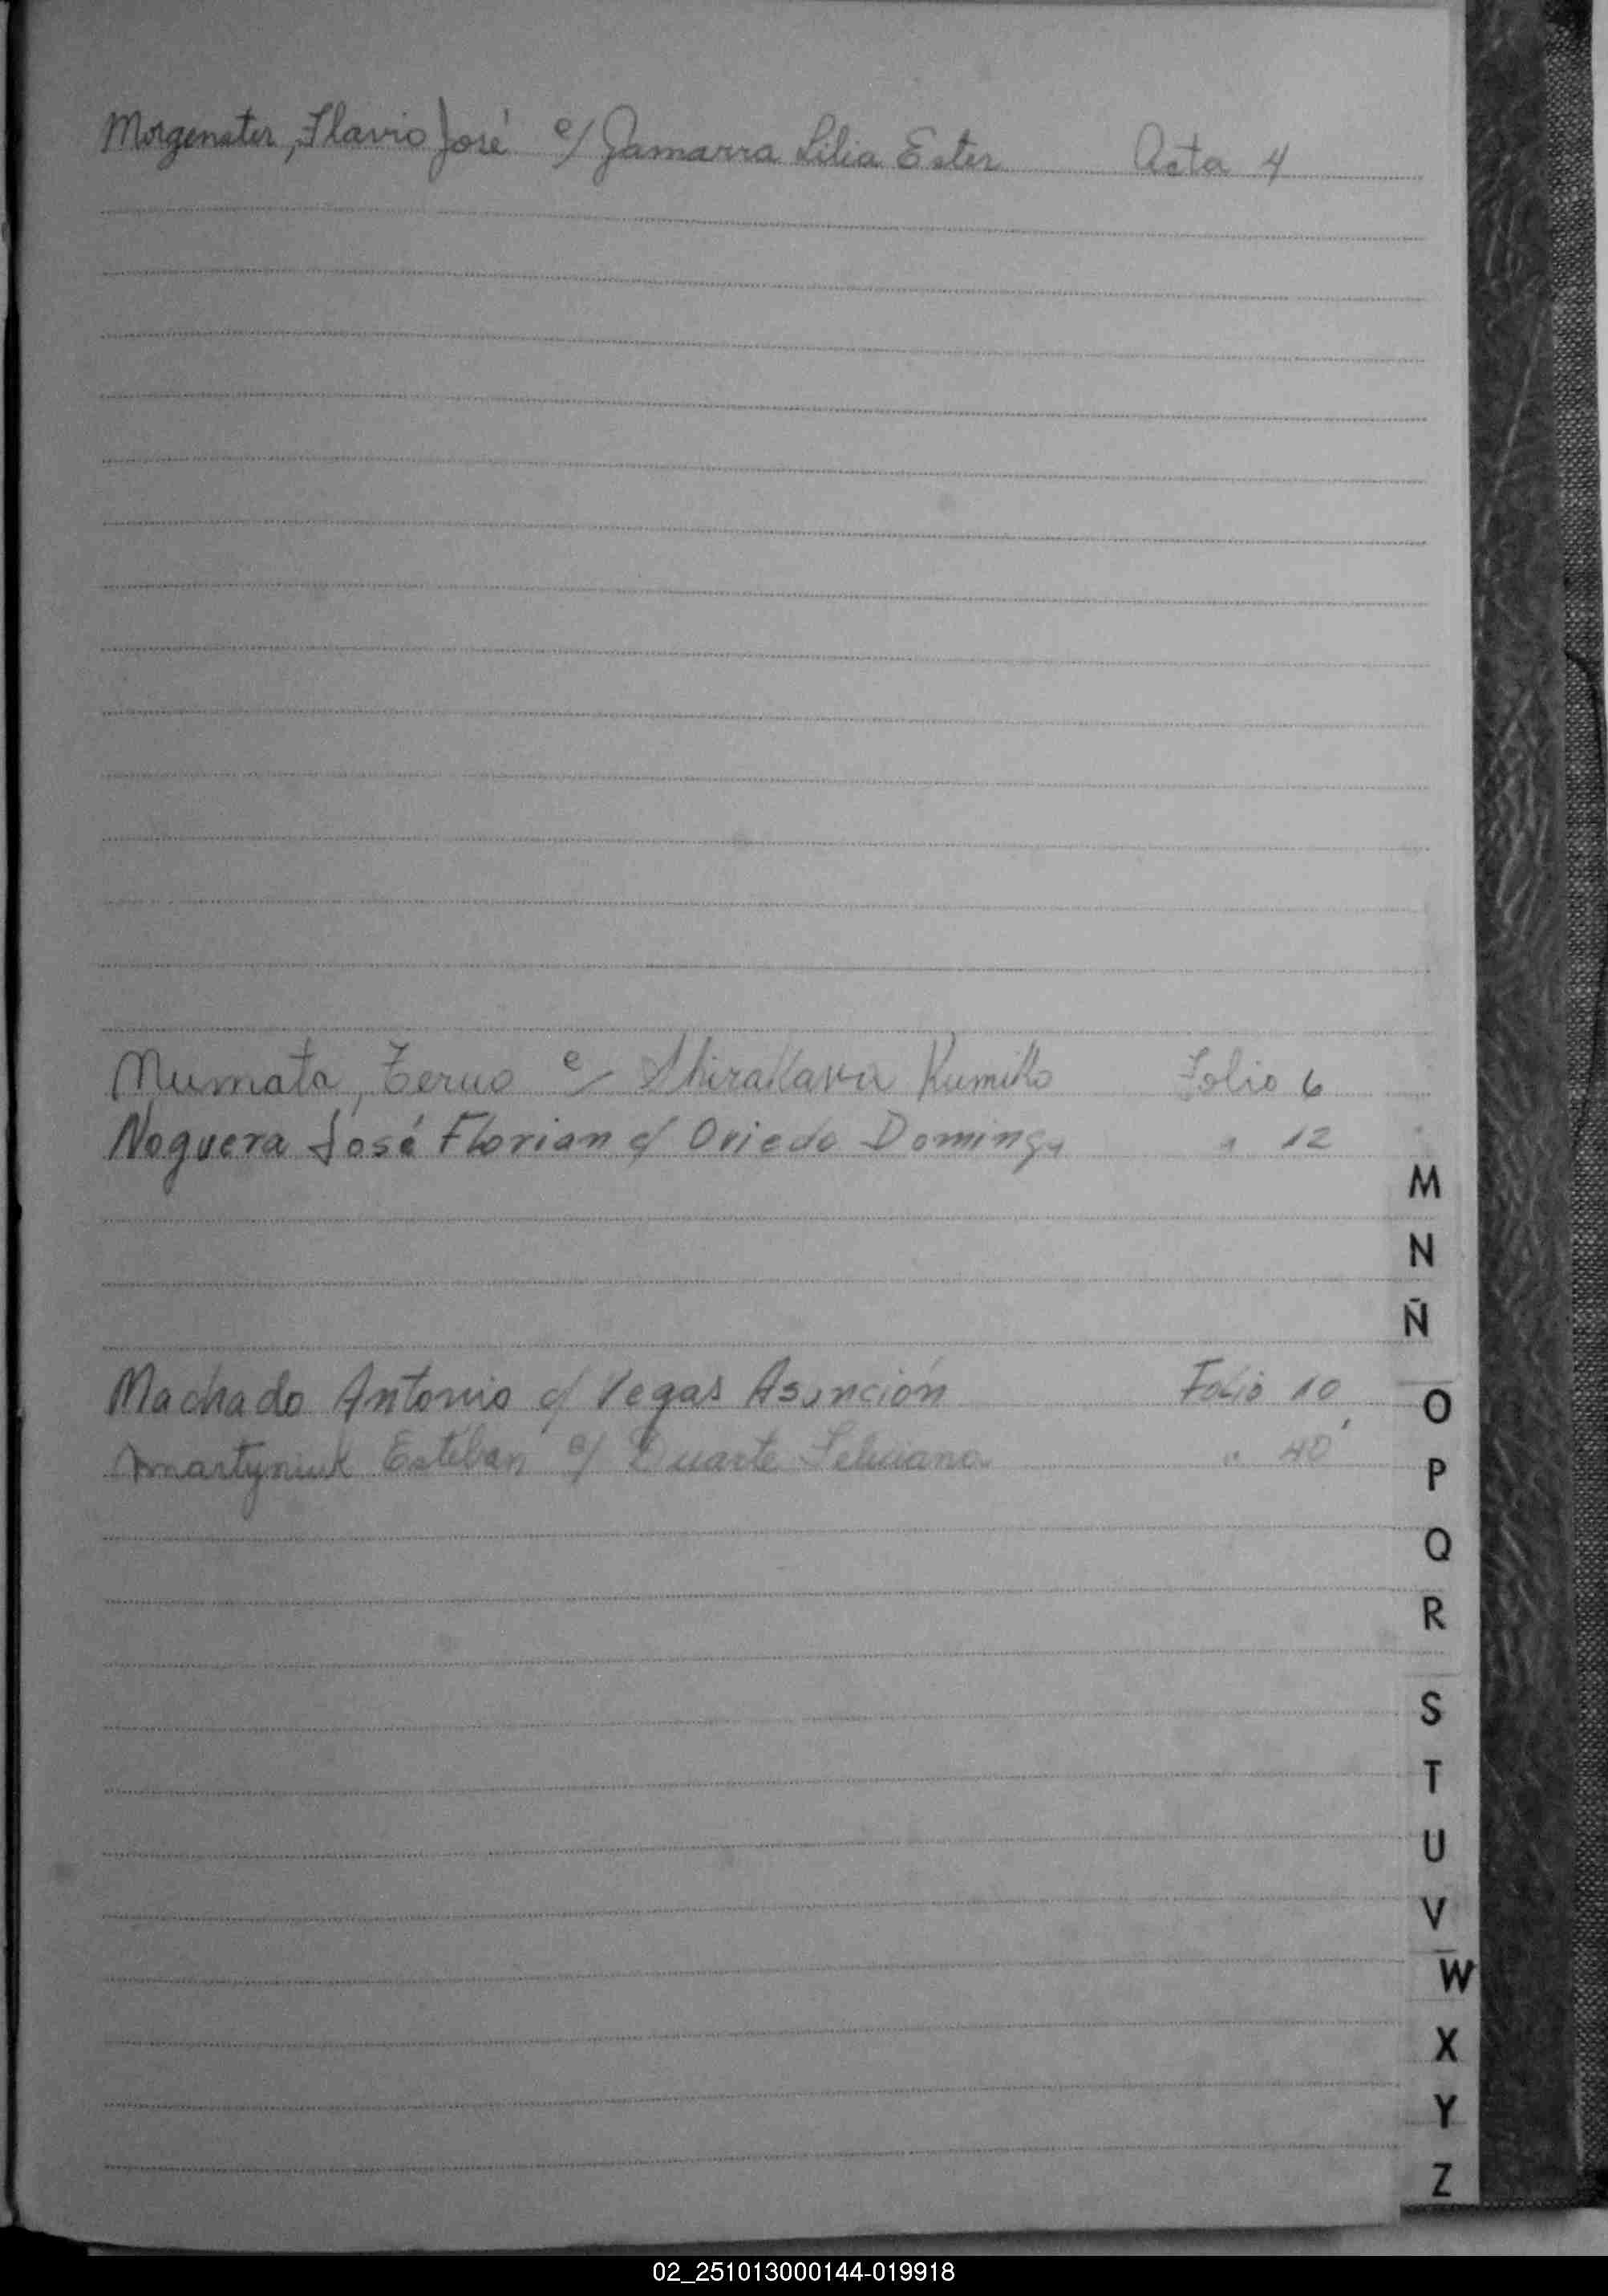 Morgenster, Flavio José c/ Gamarra Lilia Ester Acta 4
Numata, Teruo c/ Shirakava Kumiko Folio 6
Noguera José Florian c/ Oviedo Dominga " 12
M
N
Ñ
Machado Antonio c/ Vegas Asunción Folio 10
O
Martyniuk Esteban c/ Duarte Feliciana " 40
P
Q
R
S
T
U
V
W
X
Y
Z
02_251013000144-019918